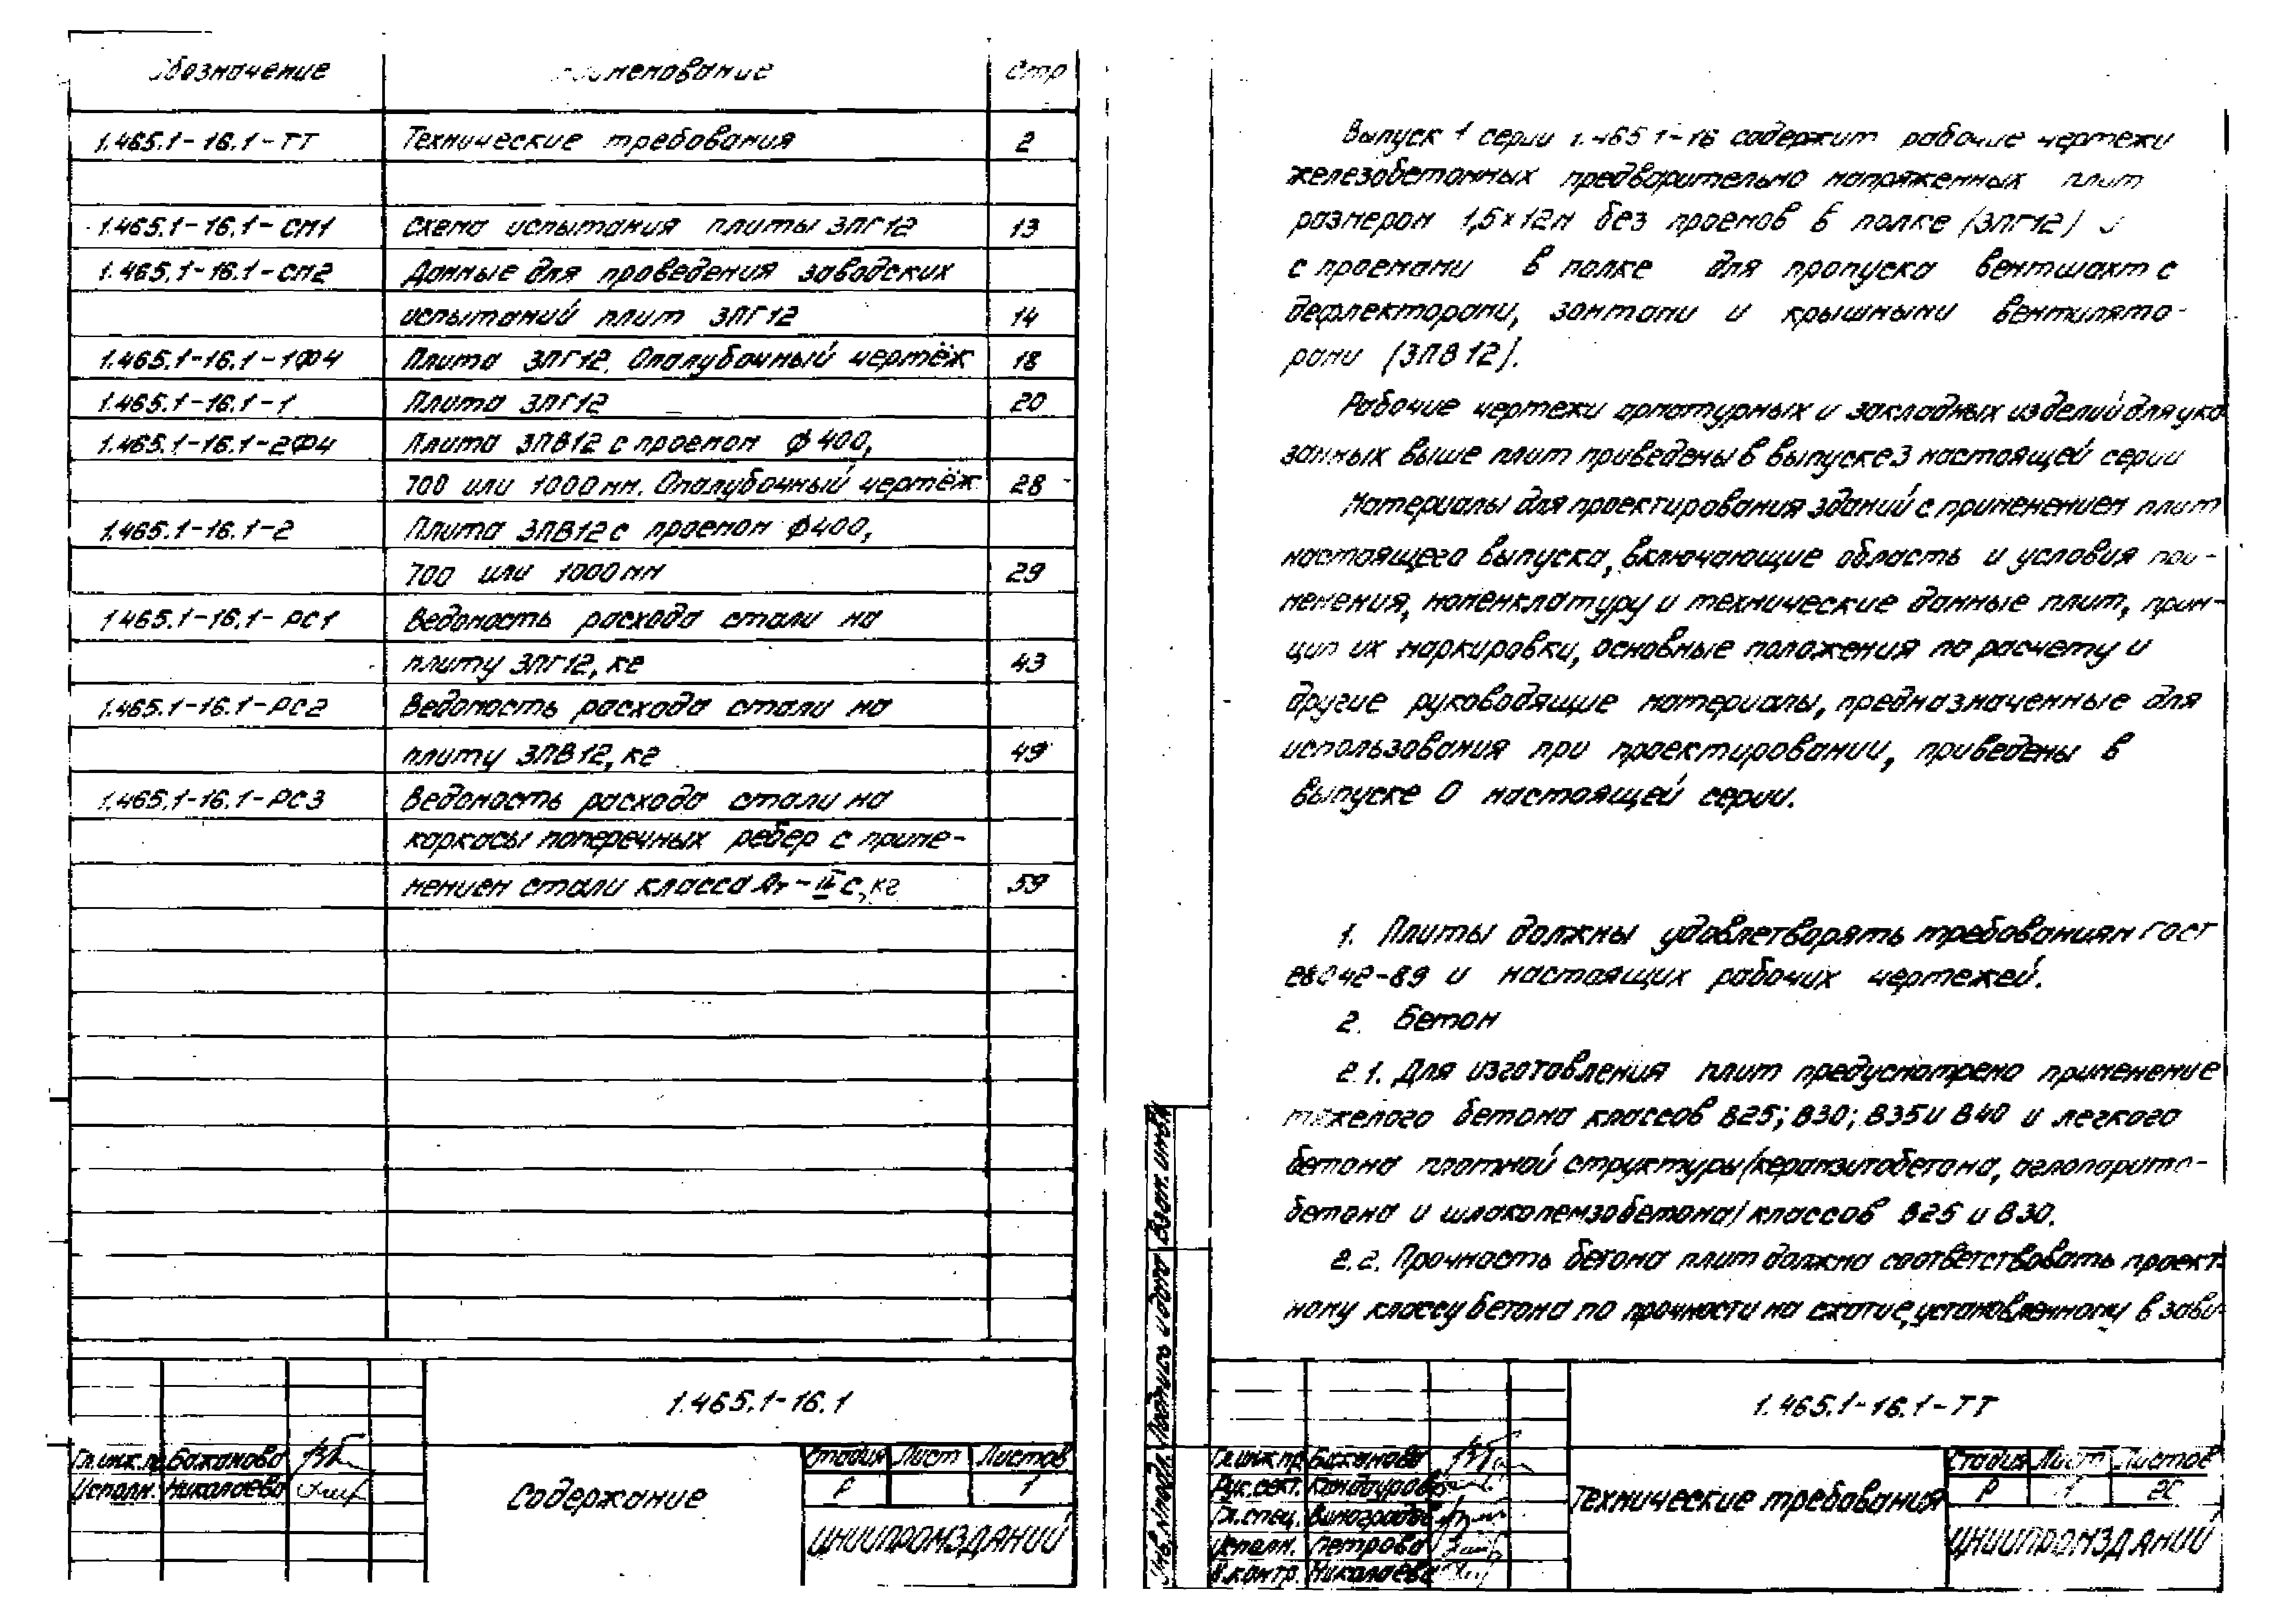 Обозначение Наименование Стр
1.465.1-16.1-ТТ Технические требования 2
1.465.1-16.1-СМ1 Схема испытания плиты 3ПГ12 13
1.465.1-16.1-СМ2 Данные для проведения заводских
испытаний плит 3ПГ12 14
1.465.1-16.1-1ФЧ Плита 3ПГ12. Опалубочный чертёж 18
1.465.1-16.1-1 Плита 3ПГ12 20
1.465.1-16.1-2ФЧ Плита 3ПВ12 с проемом ф 400,
700 или 1000 мм. Опалубочный чертёж 28
1.465.1-16.1-2 Плита 3ПВ12 с проемом ф 400,
700 или 1000 мм 29
1.465.1-16.1-РС1 Ведомость расхода стали на
плиту 3ПГ12, кг 43
1.465.1-16.1-РС2 Ведомость расхода стали на
плиту 3ПВ12, кг 49
1.465.1-16.1-РС3 Ведомость расхода стали на
каркасы поперечных ребер с приме-
нением стали класса Ат-IVС, кг 59
1.465.1-16.1
Гл.инж.пр. Бажанова
Исполн. Николаева
Содержание
Стадия Лист Листов
Р 1
ЦНИИПРОМЗДАНИЙ
Выпуск 1 серии 1.465.1-16 содержит рабочие чертежи
железобетонных предварительно напряженных плит
размером 1,5х12м без проемов в полке (3ПГ12) и
с проемами в полке для пропуска вентшахт с
дефлекторами, зонтами и крышными вентилято-
рами (3ПВ12).
Рабочие чертежи арматурных и закладных изделий для ука
занных выше плит приведены в выпуске 3 настоящей серии
Материалы для проектирования зданий с применением плит
настоящего выпуска, включающие область и условия при-
менения, номенклатуру и технические данные плит, прин-
цип их маркировки, основные положения по расчету и
другие руководящие материалы, предназначенные для
использования при проектировании, приведены в
выпуске 0 настоящей серии.
1. Плиты должны удовлетворять требованиям ГОСТ
28042-89 и настоящих рабочих чертежей.
2. Бетон
2.1. Для изготовления плит предусмотрено применение
тяжелого бетона классов В25; В30; В35 и В40 и легкого
бетона плотной структуры (керамзитобетона, аглопорито-
бетона и шлакопемзобетона) классов В25 и В30.
2.2. Прочность бетона плит должна соответствовать проект-
ному классу бетона по прочности на сжатие, установленному в зави-
Инв.№подл. Подпись и дата Взам.инв.№
1.465.1-16.1-ТТ
Гл.инж.пр. Бажанова
Рук.сект. Кондаурова
Гл.спец. Виноградова
Исполн. Петрова
Н.контр. Николаева
Технические требования
Стадия Лист Листов
Р 1
ЦНИИПРОМЗДАНИЙ